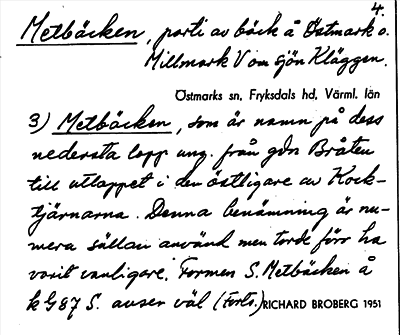 4.
Metbäcken, parti av bäck å Östmark o.
Millmark V om sjön Kläggen.
Östmarks sn, Fryksdals hd, Värml. län
3) Metbäcken, som är namn på dess
nedersta lopp ung. från gdn Bråten
till utloppet i den östligare av Kock-
tjärnarna. Denna benämning är nu-
mera sällan använd men torde förr ha
varit vanligare. Formen S. Metbäcken å
k G87 S. avser väl (Forts.) RICHARD BROBERG 1951